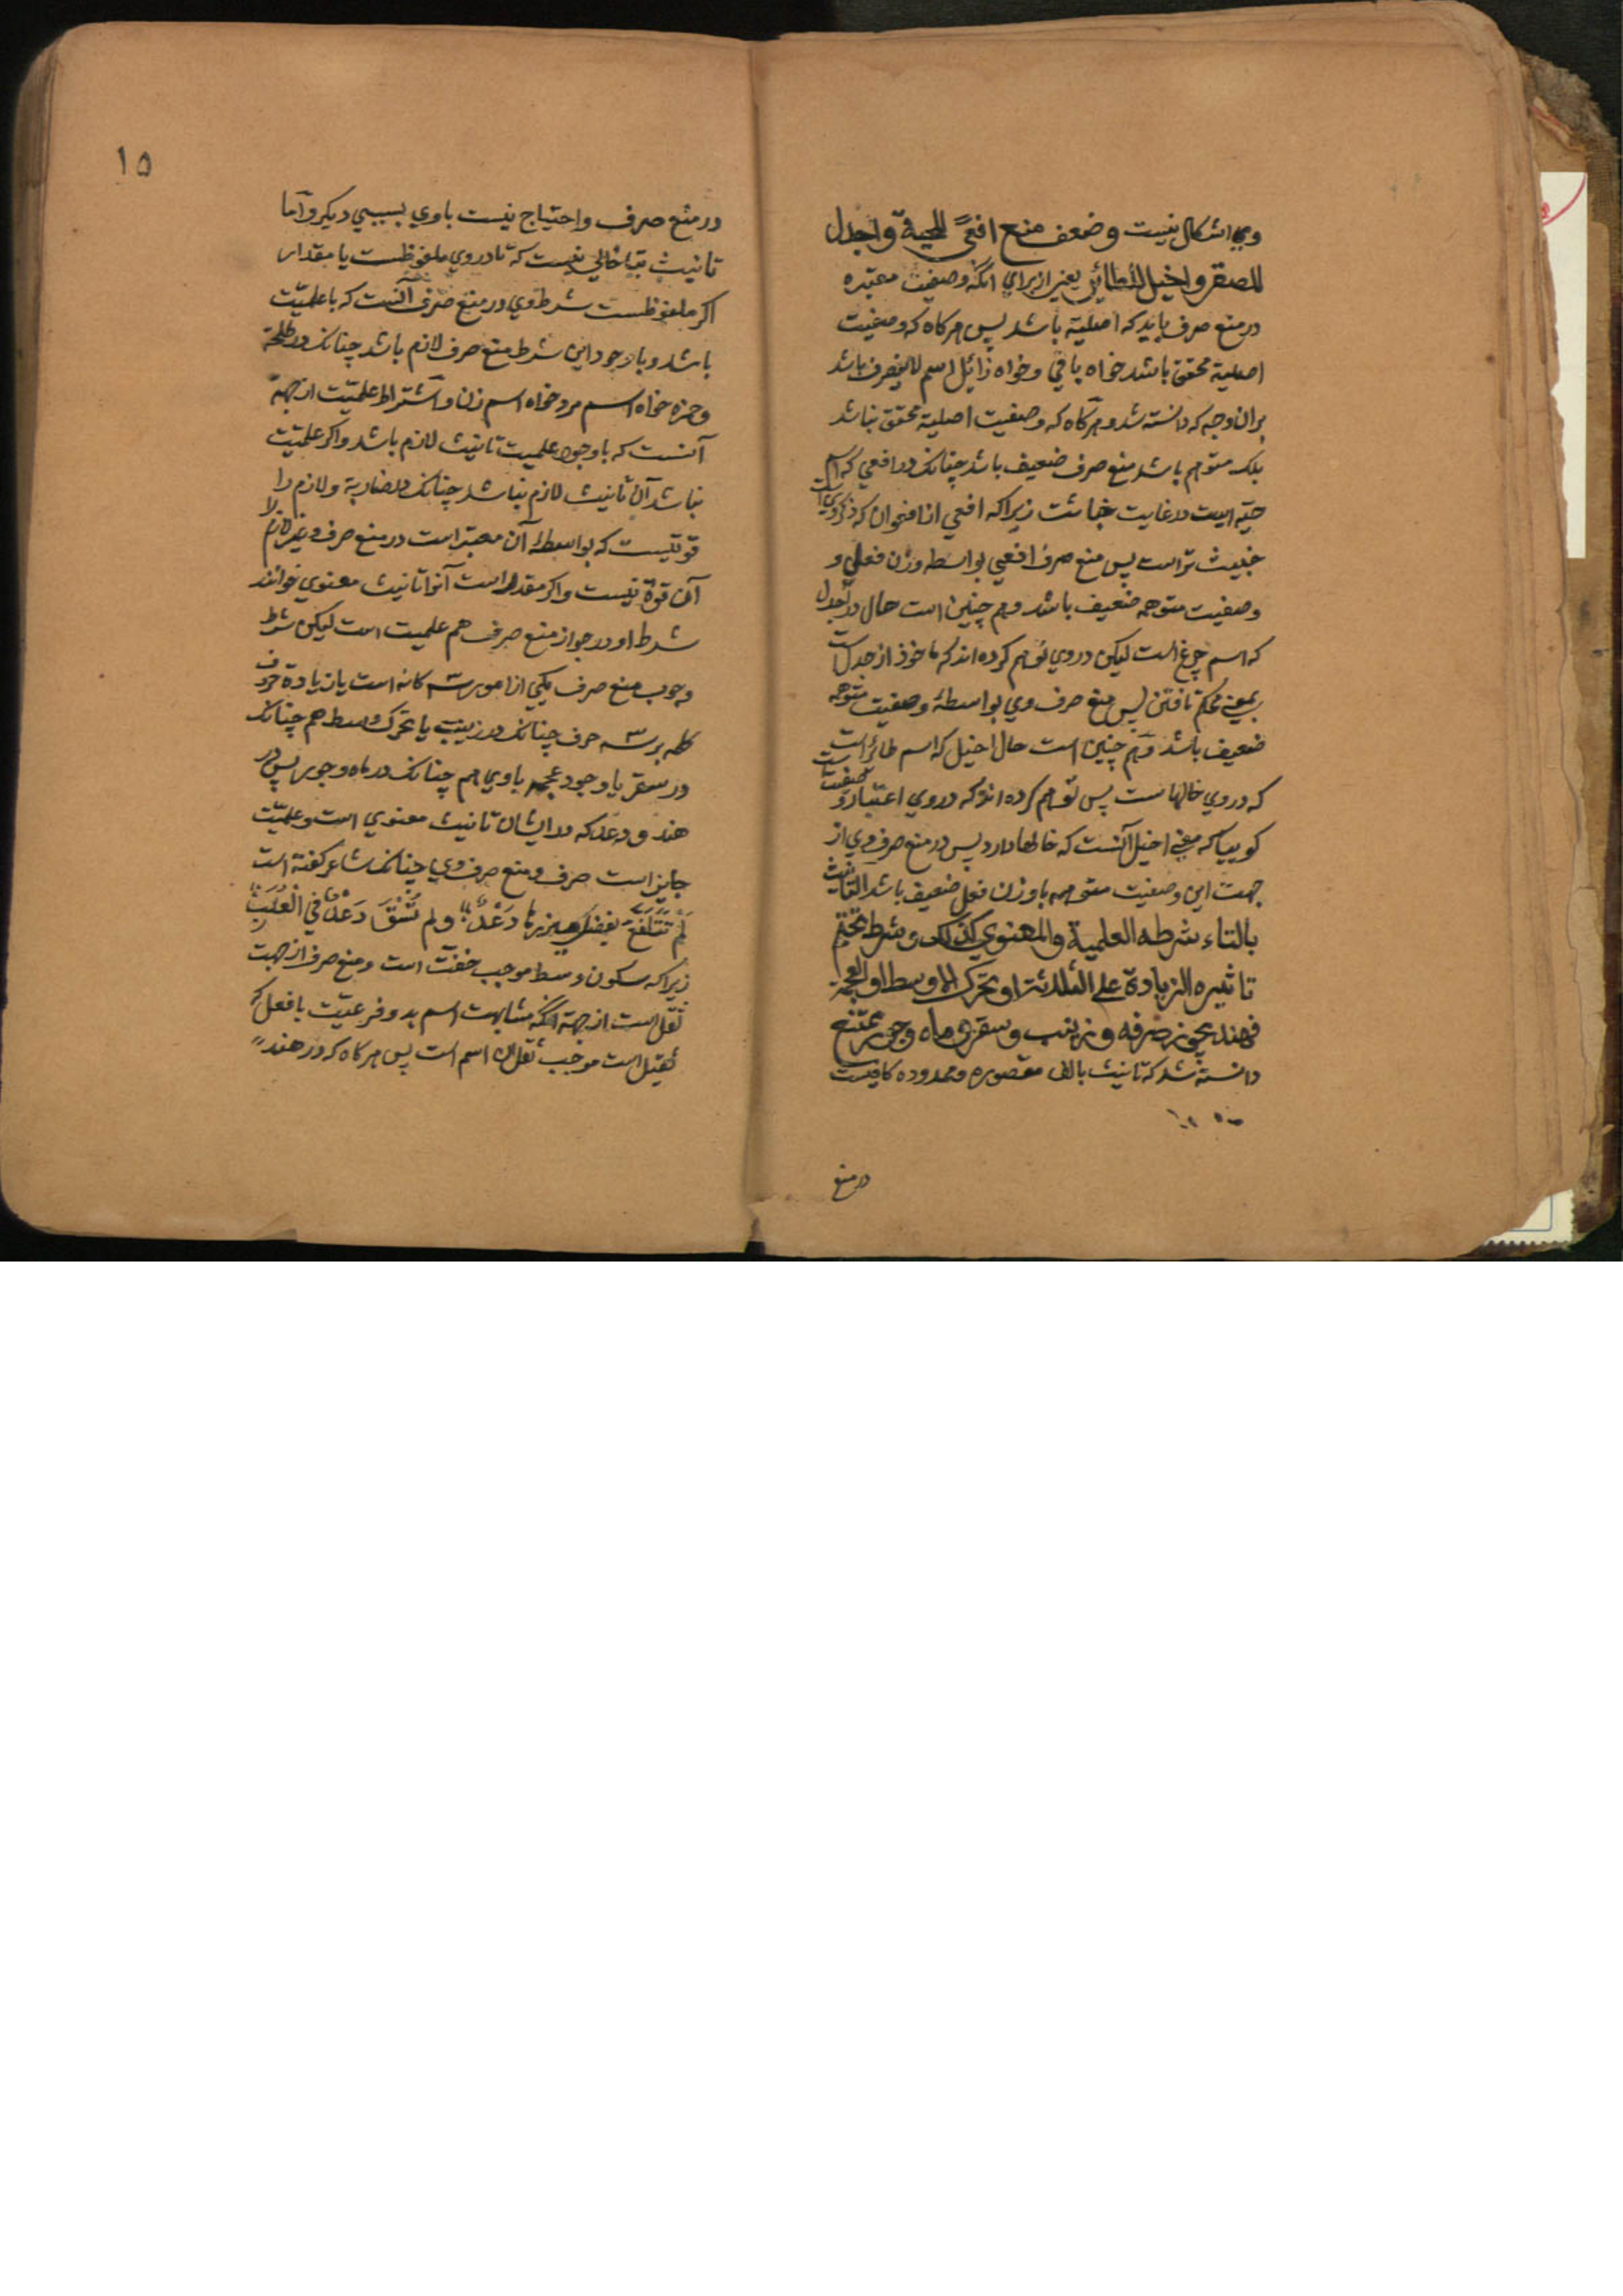 وی اشکال نیست وضعف منع افعیً للحیة واجدل
للصقر واخیل للطائر یعنی از برای آنکه وصفیت معتبره
در منع صرف باید که اصلیة باشد پس هرکاه که وصفیت
اصلیة محقق باشد خواه باقی وخواه زائل اسم لاینصرف باشد
بر ان وجه که دانسته شد وهرکاه که وصفیت اصلیة محقق نباشد
بلکه متوهم باشد منع صرف ضعیف باشد چنانک در افعی که اسم
حیّه ایست در غایت خباثت زیرا که افعی از افعوان که ذکر وی است
خبیث تر است پس منع صرف افعی بواسطه وزن فعلی و
وصفیت متوهمه ضعیف باشد وهم چنین است حال در اجدل
که اسم چرغ است لیکن در وی توهم کرده اند که ماخوذ از جدل است
بمعنی محکم تافتن پس منع صرف وی بواسطهٔ وصفیت متوهمه
ضعیف باشد وهم چنین است حال اخیل که اسم طائر است
که در وی خالهاست پس توهم کرده اند که در وی اعتبار وصفیت است
کوییا که معنی اخیل آنست که خالها دارد پس در منع صرف وی از
جهت این وصفیت متوهمه با وزن فعل ضعیف باشد التانیث
بالتاء شرطه العلمیة والمعنوی کذلک وشرط تحتم
تاثیره الزیادة علی الثلاثة او تحرک الاوسط او العجمة
فهند یجوز صرفه و زینب وسقر و ماه وجور ممتنع
دانسته شد که تانیث بالف مقصوره وممدوده کافیست
در منع
۱۵
در منع صرف واحتیاج نیست با وی بسببی دیکر واما
تانیث بتا خالی نیست که تا در وی ملفوظست یا مقدار
اکر ملفوظست شرط وی در منع صرف آنست که با علمیّت
باشد وبا وجود این شرط منع صرف لازم باشد چنانک در طلحة
وحمزه خواه اسم مرد خواه اسم زن واشتراط علمیّت از جهة
آنست که با وجود علمیت تانیث لازم باشد واکر علمیّت
نباشد آن تانیث لازم نباشد چنانک در ضاربة ولازم را
قوتیست که بواسطهٔ آن معتبر است در منع صرف وغیر لازم را
آن قوّة نیست واکر مقدر است آنرا تانیث معنوی خوانند
شرط او در جواز منع صرف هم علمیت است لیکن شرط
وجوب منع صرف یکی از امور سه کانه است یا زیادة حروف
کلمه بر سه حرف چنانک در زینب یا تحرک وسط هم چنانک
در سقر یا وجود عجمه با وی هم چنانک در ماه وجور پس در
هند ودعد که در ایشان تانیث معنوی است وعلمیّت
جایز است صرف ومنع صرف وی چنانک شاعر کفته است
لَمْ تَتَلَفَّعْ بفضل میزرها دَعْدٌ ولم تُسْقَ دَعْدُ فِی الْعُلَبِ
زیرا که سکون وسط موجب خفّت است ومنع صرف از جهت
ثقل است از جهة آنکه مشابهت اسم بدو فرعیّت با فعل که
ثقیل است موجب ثقل ان اسم است پس هرکاه که در هند